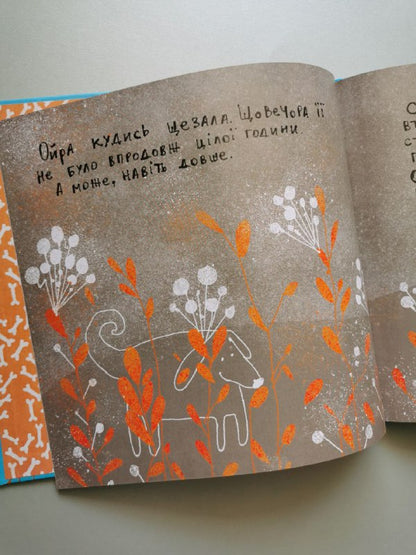 Ойра кудись щезала. Щовечора її
не було впродовж цілої години.
А може, навіть довше.